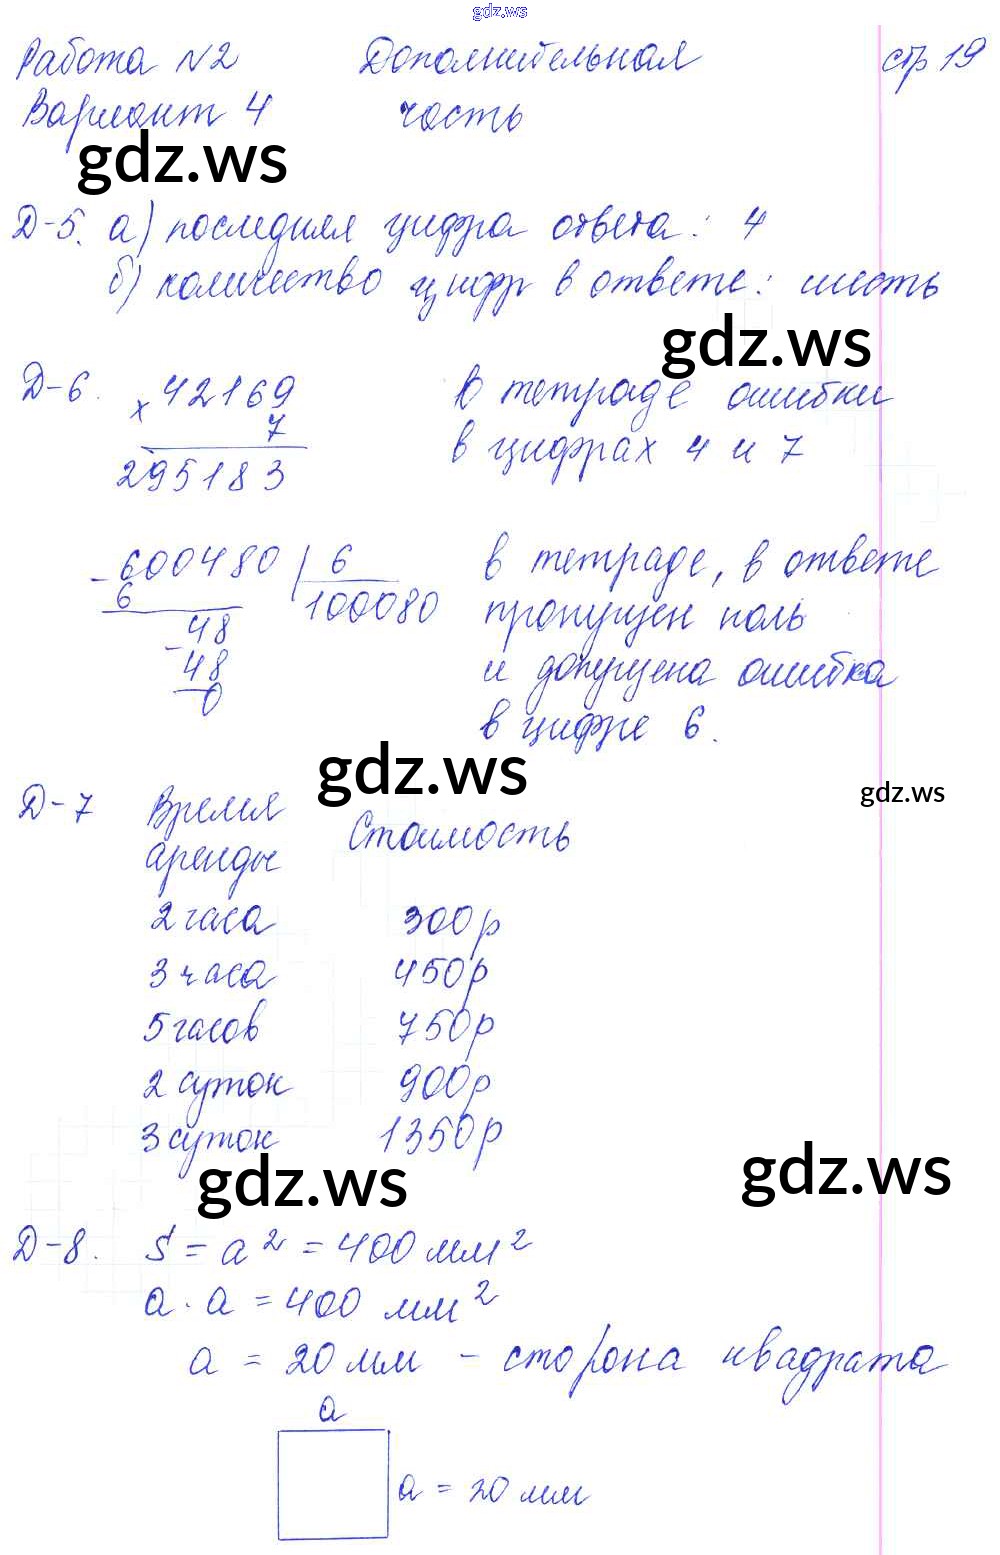 gdz.ws
Работа №2 Дополнительная стр 19
Вариант 4 часть
gdz.ws
Д-5. а) последняя цифра ответа: 4
б) количество цифр в ответе: шесть
gdz.ws
Д-6. × 42169 в тетраде ошибки
7 в цифрах 4 и 7
295183
- 600480 | 6 в тетраде, в ответе
6 100080 пропущен ноль
- 48 и допущена ошибка
48 в цифре 6.
0
gdz.ws
gdz.ws
Д-7 Время Стоимость
аренды
2 часа 300р
3 часа 450р
5 часов 750р
2 суток 900р
3 суток 1350р
gdz.ws
gdz.ws
Д-8. S = a² = 400 мм²
a · a = 400 мм²
a = 20 мм - сторона квадрата
a
a = 20 мм